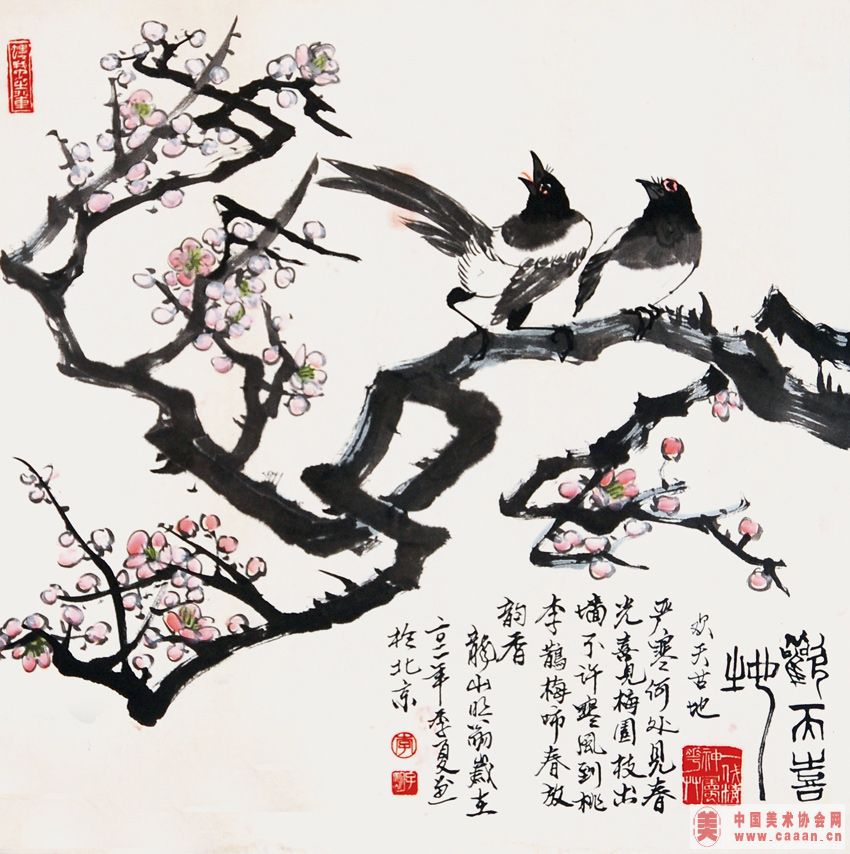 歡天喜
地
欢天喜地
严寒何处见春
光喜见梅园枝出
墙不许寒风到桃
李鹊梅啼春放
韵香
龍山明翁歲在
年季夏画
於北京
李
美
中国美术协会网
www.caaan.cn